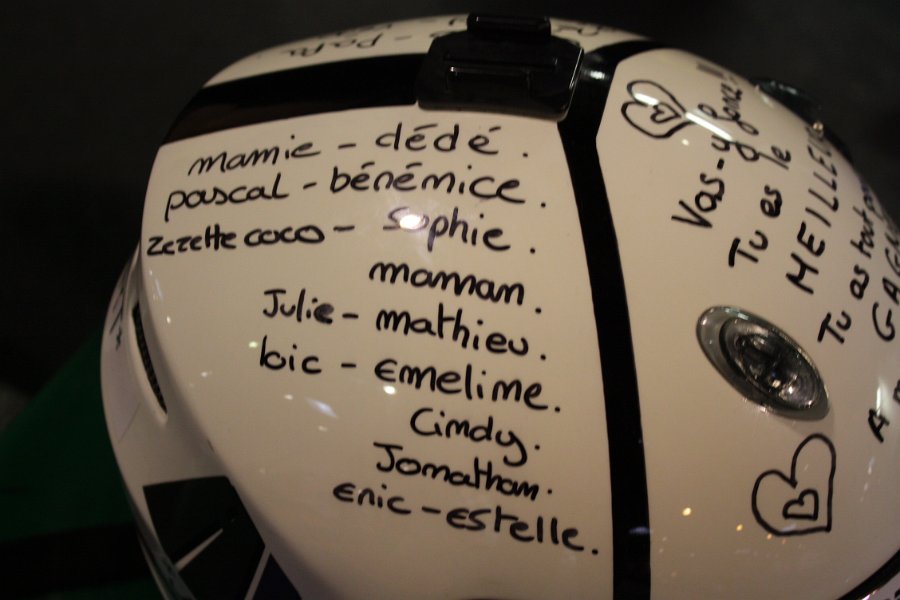 - papa
mamie - dédé.
pascal - bérénice.
zezette coco - Sophie.
maman.
Julie - mathieu.
loic - Emeline.
Cindy.
Jonathan.
Eric - Estelle.
Vas-y fonce !!
Tu es le
MEILLEU
Tu as tout
GAGN